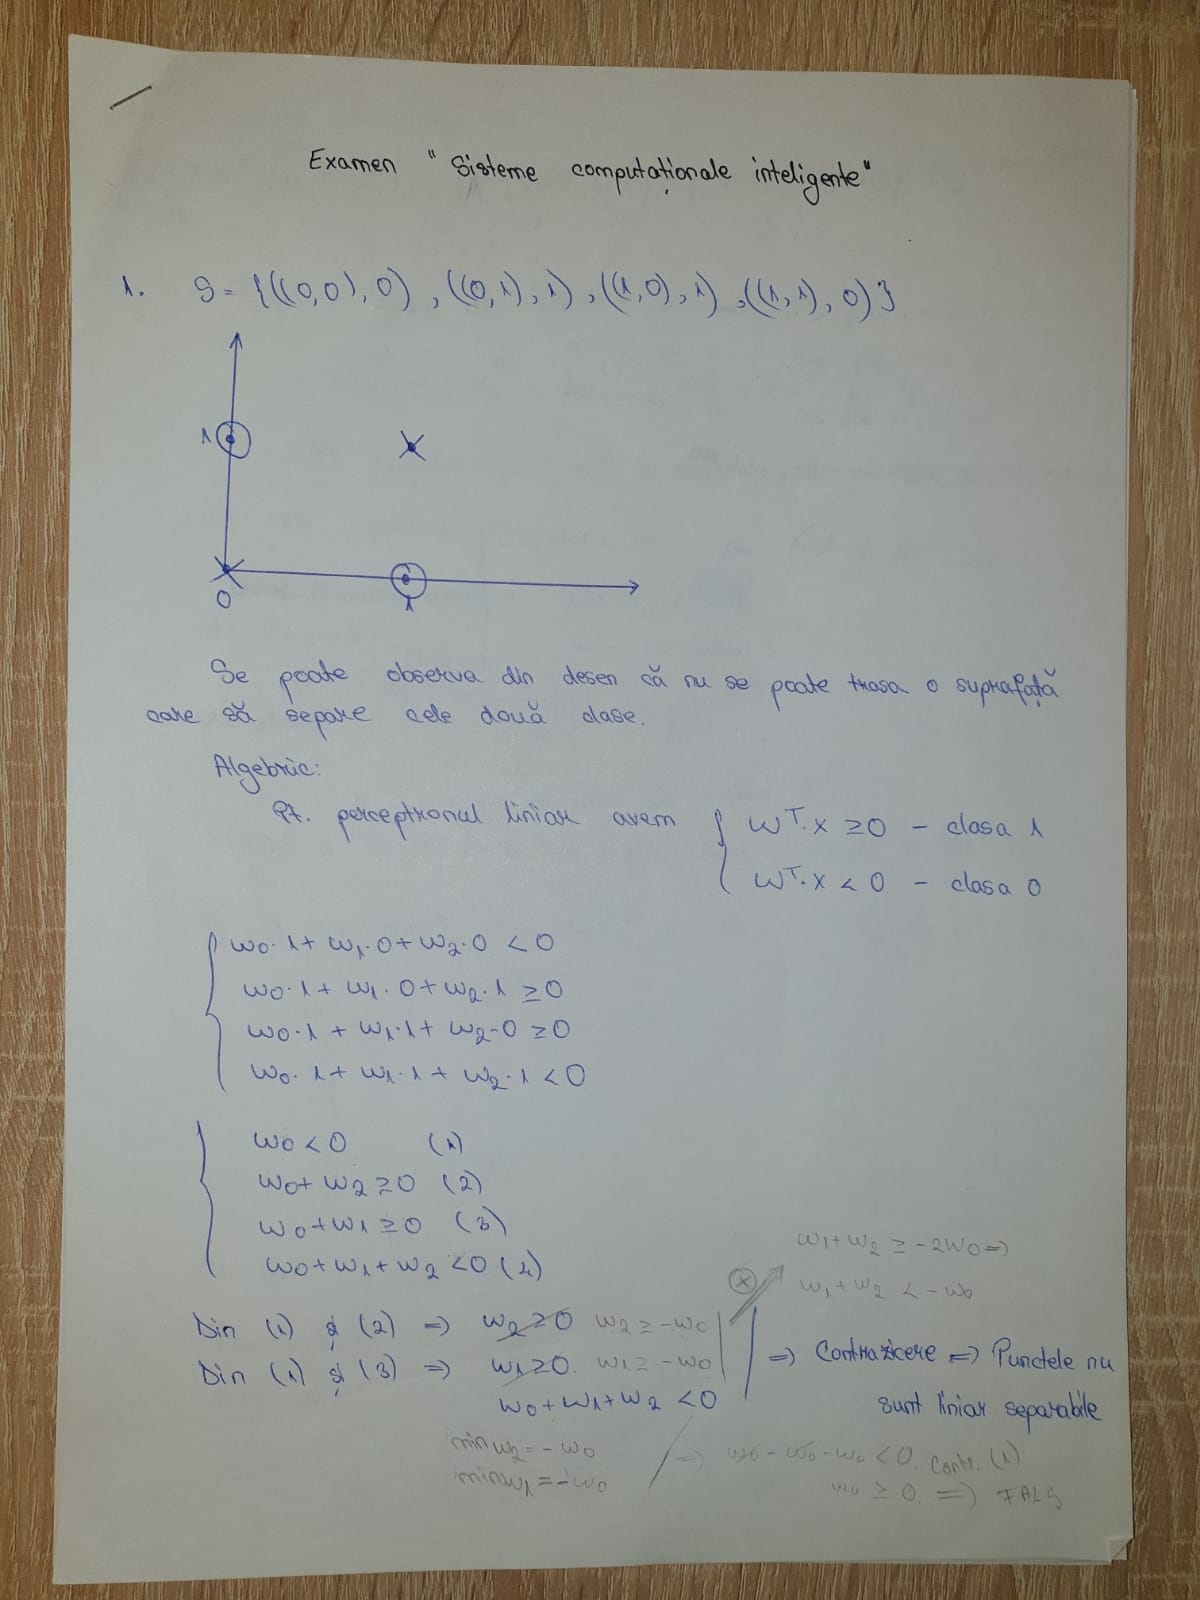 Examen "Sisteme computaționale inteligente"
1. S = {((0,0),0), ((0,1),1), ((1,0),1), ((1,1),0)}
1
0
1
Se poate observa din desen că nu se poate trasa o suprafață
care să separe cele două clase.
Algebric:
Pt. perceptronul liniar avem { wᵀ·x ≥ 0 – clasa 1
wᵀ·x < 0 – clasa 0
w0·1 + w1·0 + w2·0 < 0
w0·1 + w1·0 + w2·1 ≥ 0
w0·1 + w1·1 + w2·0 ≥ 0
w0·1 + w1·1 + w2·1 < 0
w0 < 0 (1)
w0 + w2 ≥ 0 (2)
w0 + w1 ≥ 0 (3)
w0 + w1 + w2 < 0 (4)
w1 + w2 ≥ -2w0 =>
w1 + w2 < -w0
Din (1) și (2) => w2 ≥ 0 w2 ≥ -w0
Din (1) și (3) => w1 ≥ 0. w1 ≥ -w0 => Contrazicere => Punctele nu
w0 + w1 + w2 < 0 sunt liniar separabile
min w2 = -w0 => w0 - w0 - w0 < 0. Contr. (1)
min w1 = -w0 w0 ≥ 0. => FALS